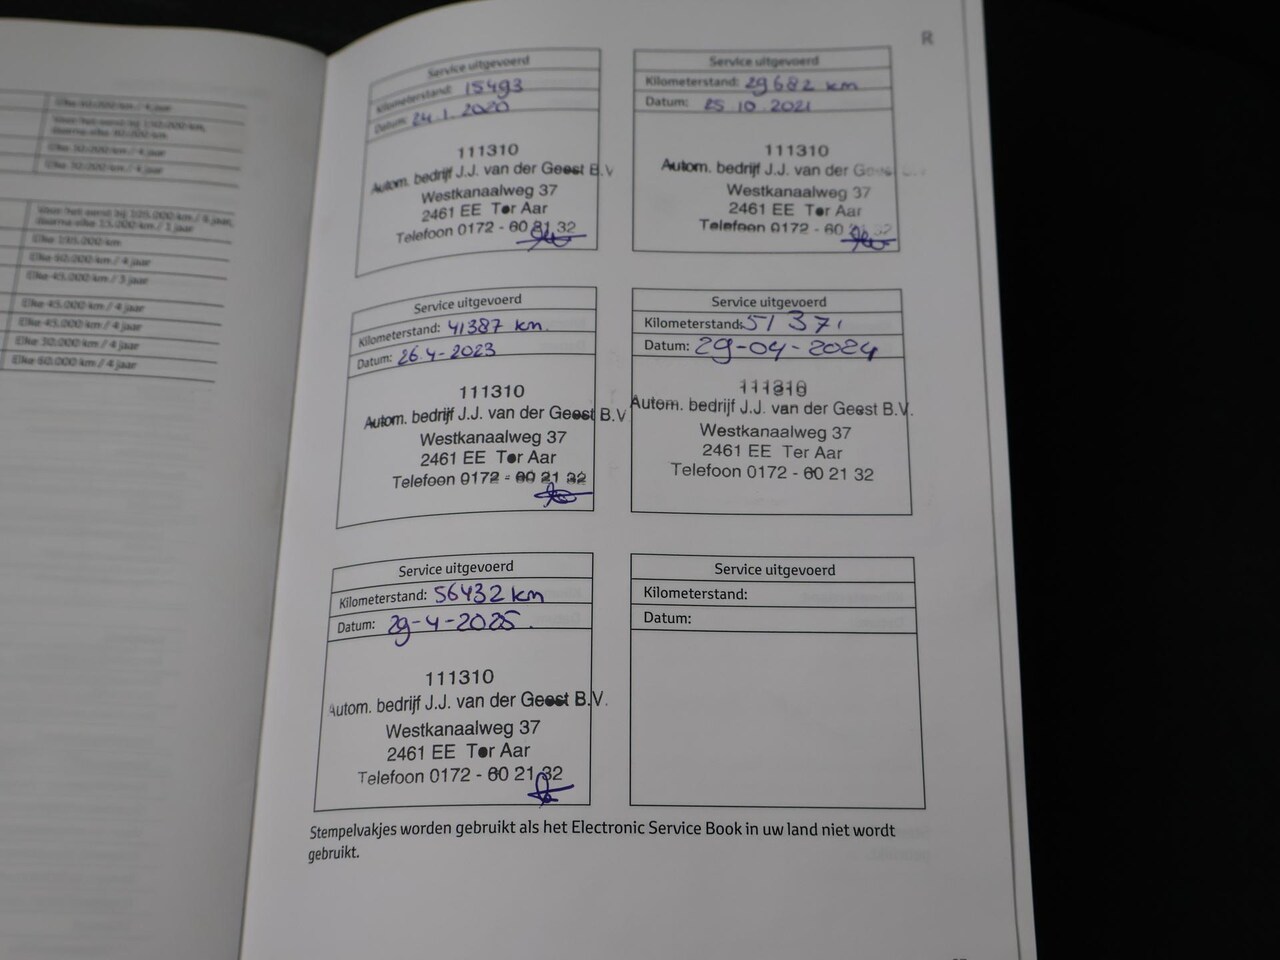 Elke 60.000 km / 4 jaar
Elke 30.000 km / 4 jaar
Elke 30.000 km / 4 jaar
Elke 60.000 km / 4 jaar
Elke 45.000 km / 3 jaar
Elke 45.000 km / 4 jaar
Elke 45.000 km / 4 jaar
Elke 30.000 km / 4 jaar
Elke 60.000 km / 4 jaar
R
Service uitgevoerd
Kilometerstand: 15493
Datum: 24.1.2020
111310
Autom. bedrijf J.J. van der Geest B.V
Westkanaalweg 37
2461 EE Ter Aar
Telefoon 0172 - 60 21 32
Service uitgevoerd
Kilometerstand: 29682 km
Datum: 25 10 2021
111310
Autom. bedrijf J.J. van der Geest
Westkanaalweg 37
2461 EE Ter Aar
Telefoon 0172 - 60 21 32
Service uitgevoerd
Kilometerstand: 41387 km.
Datum: 26.4-2023
111310
Autom. bedrijf J.J. van der Geest B.V
Westkanaalweg 37
2461 EE Ter Aar
Telefoon 0172 - 60 21 32
Service uitgevoerd
Kilometerstand: 51371
Datum: 29-04-2024
111310
Autom. bedrijf J.J. van der Geest B.V.
Westkanaalweg 37
2461 EE Ter Aar
Telefoon 0172 - 60 21 32
Service uitgevoerd
Kilometerstand: 56432 km
Datum: 29-4-2025.
111310
Autom. bedrijf J.J. van der Geest B.V.
Westkanaalweg 37
2461 EE Ter Aar
Telefoon 0172 - 60 21 32
Service uitgevoerd
Kilometerstand:
Datum:
Stempelvakjes worden gebruikt als het Electronic Service Book in uw land niet wordt
gebruikt.